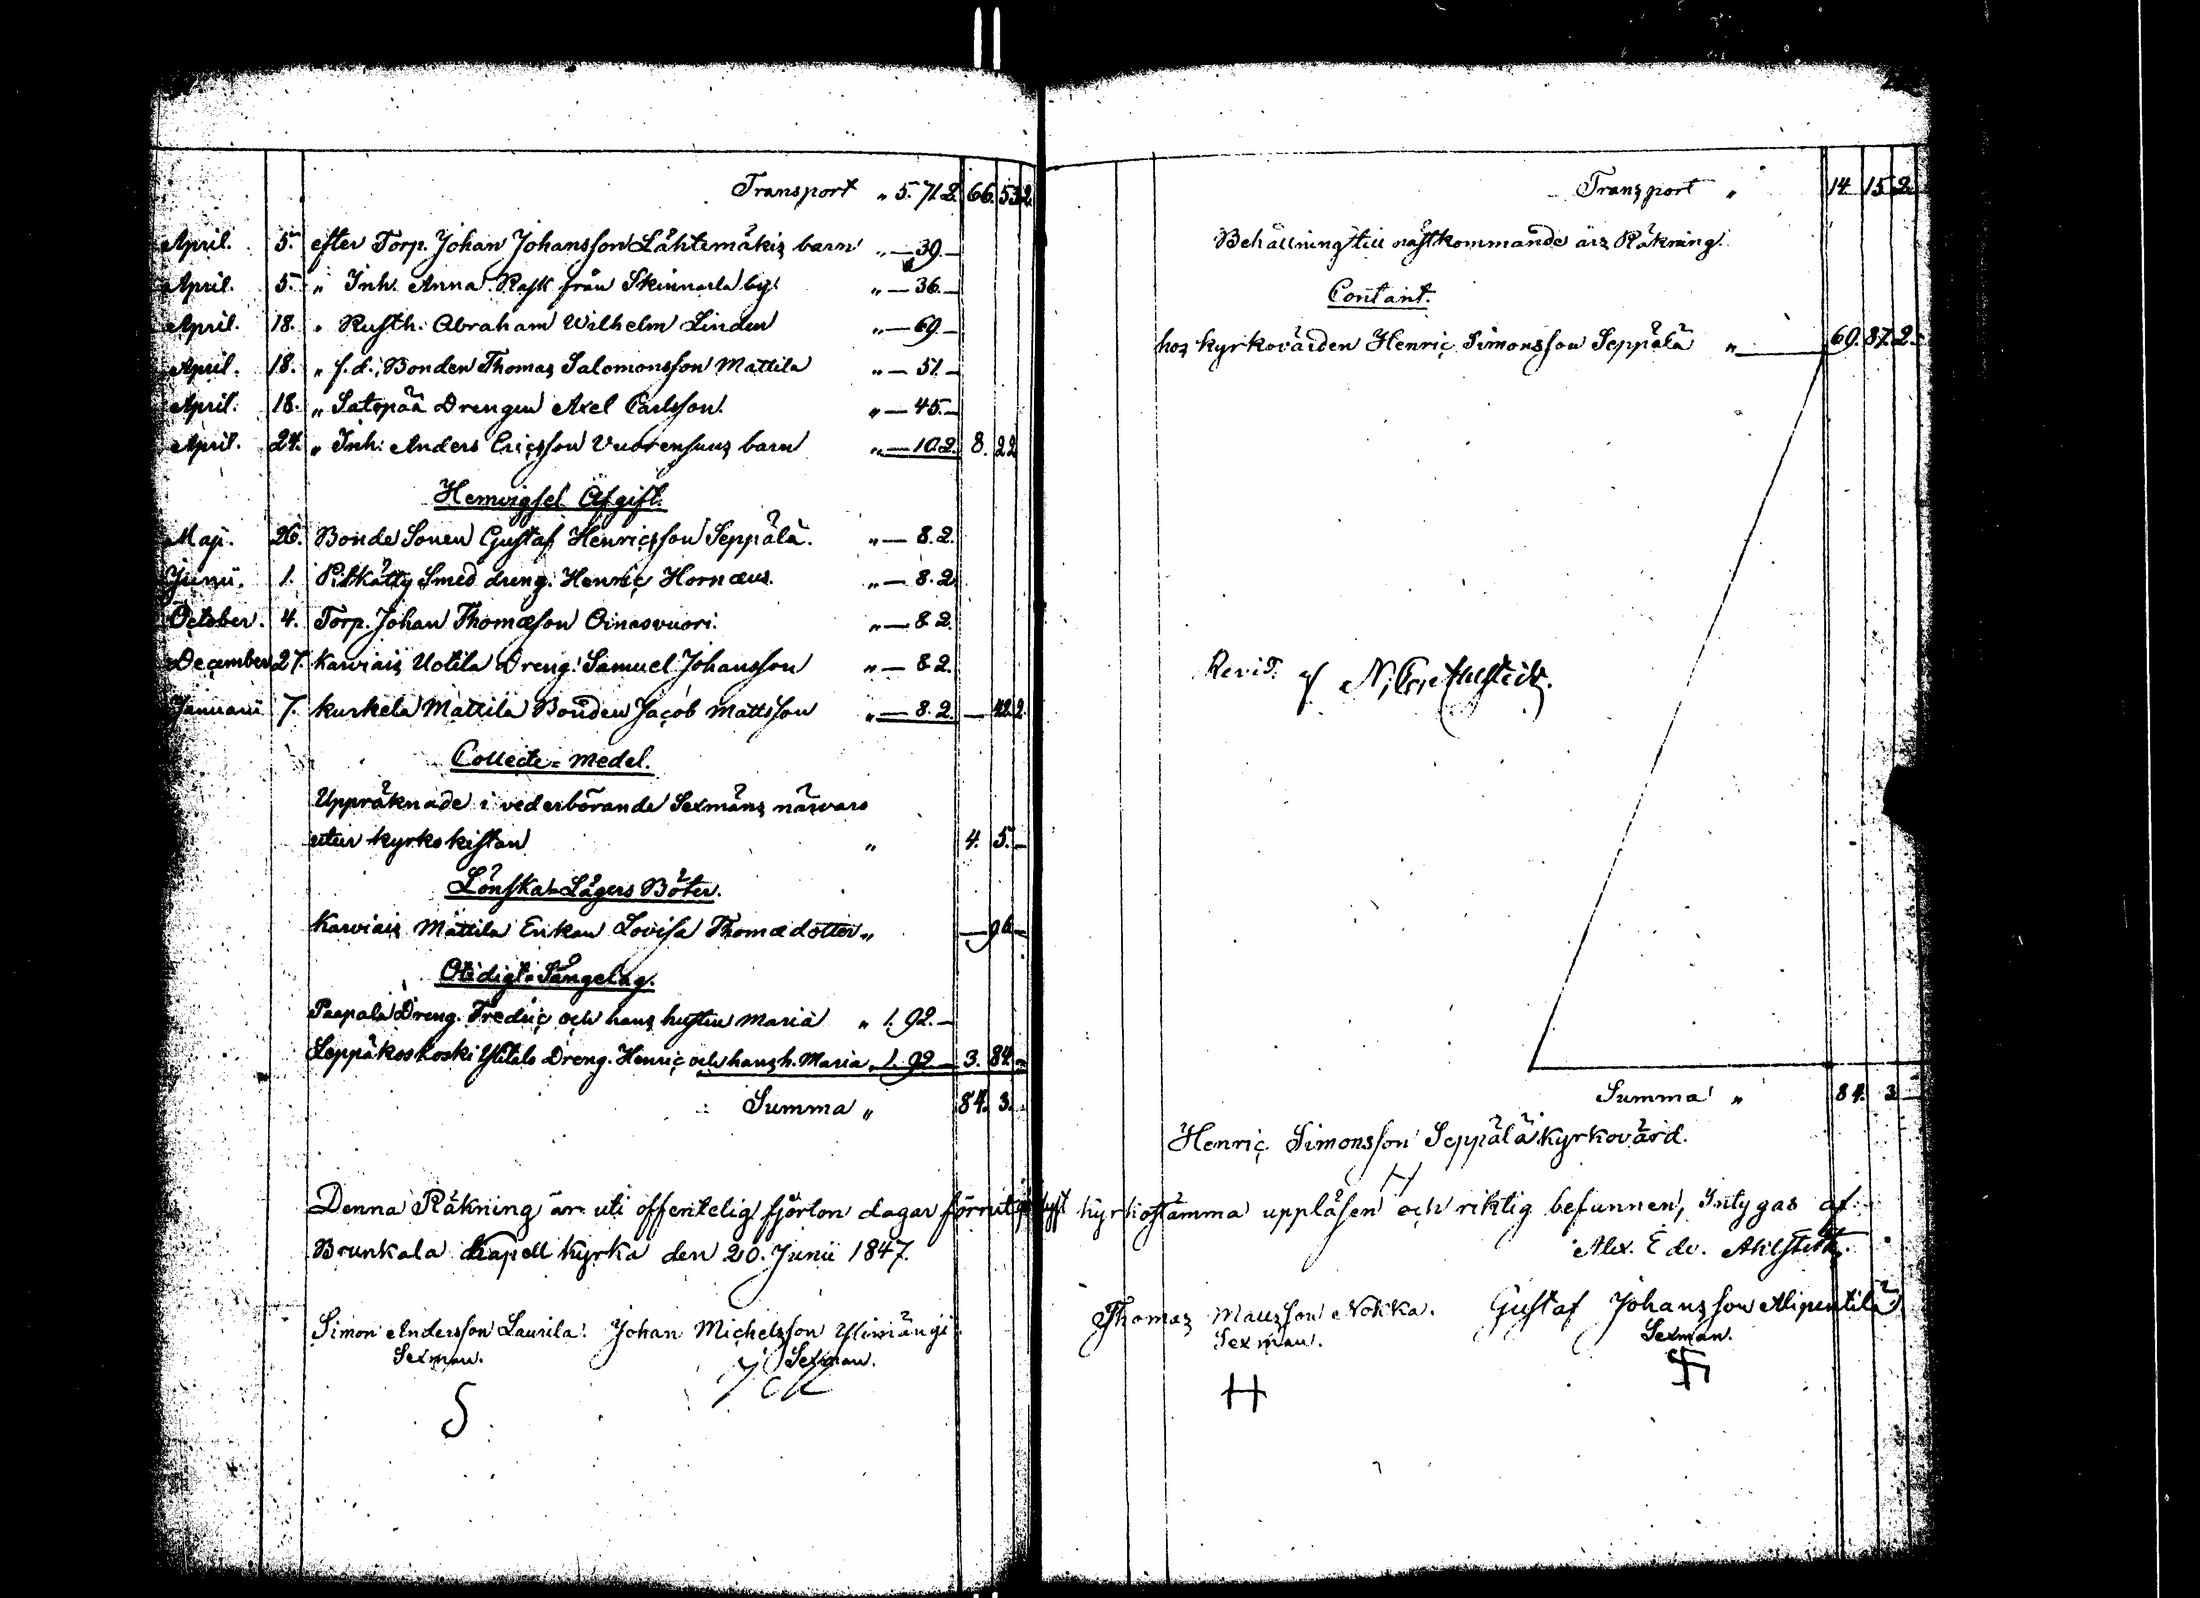 Transport " 5. 71 2. 66. 53 2.
April. 5. efter Torp. Johan Johansson Lähtemäkis barn " — 39. —
April. 5. " Inh. Anna Rask från Skinnarla by " — 36. —
April. 18. " Rusth. Abraham Wilhelm Linden " — 69 —
April. 18. " f. d. Bonden Thomas Salomonsson Mattila " — 51 —
April. 18. " Satopää Drengen Axel Carlsson. " — 45. —
April. 24. " Inh. Anders Ericsson Vuorensuus barn " — 10. 2. 8. 22
Hemvigsel Afgift.
Maji. 26. Bonde Sonen Gustaf Henricsson Seppälä. " — 8. 2.
Junii. 1. Pitkätty Smed dreng. Henric Hornæus. " — 8. 2
October. 4. Torp. Johan Thomæson Oinasvuori. " — 8 2.
December 27. Karviais Uotila Dreng. Samuel Johansson " — 8 2.
Januarii 7. Kurkela Mattila Bonden Jacob Mattsson " — 8. 2. — 42 2.
Collecte-medel.
Uppräknade i vederbörande Sexmäns närvaro
utur kyrkokistan " 4. 5. —
Lönska-Lägers Böter.
Karviais Mattila Enkan Lovisa Thomædotter " — 96 —
Otidigt-Sängelag.
Paapala Dreng. Fredric och hans hustru Maria " 1. 92. —
Leppäkoskoski Ylitalo Dreng. Henric och hans h. Maria " 1. 92 — 3. 84 —
Summa " 84. 3. —
Denna Räkning är uti offentelig fjorton dagar förrut
Brunkala Kapell kyrka den 20. Junii 1847.
Simon Andersson Laurila. Johan Michelsson Ylimängi
Sexman. Sexman.
S
Transport " 14 15 2.
Behållning till nästkommande års Räkning.
Contant.
hos kyrkovärden Henric Simonsson Seppälä " 69. 87 2.
Revid. af
Summa " 84. 3 —
Henric Simonsson Seppälä kyrkovärd.
H
lyst kyrkostämma uppläsen och riktig befunnen, Intygas af.
Alex. Edv. Ahlstedt.
Thomas Matsson Nokka. Gustaf Johansson Alipentilä
Sexman. Sexman.
H